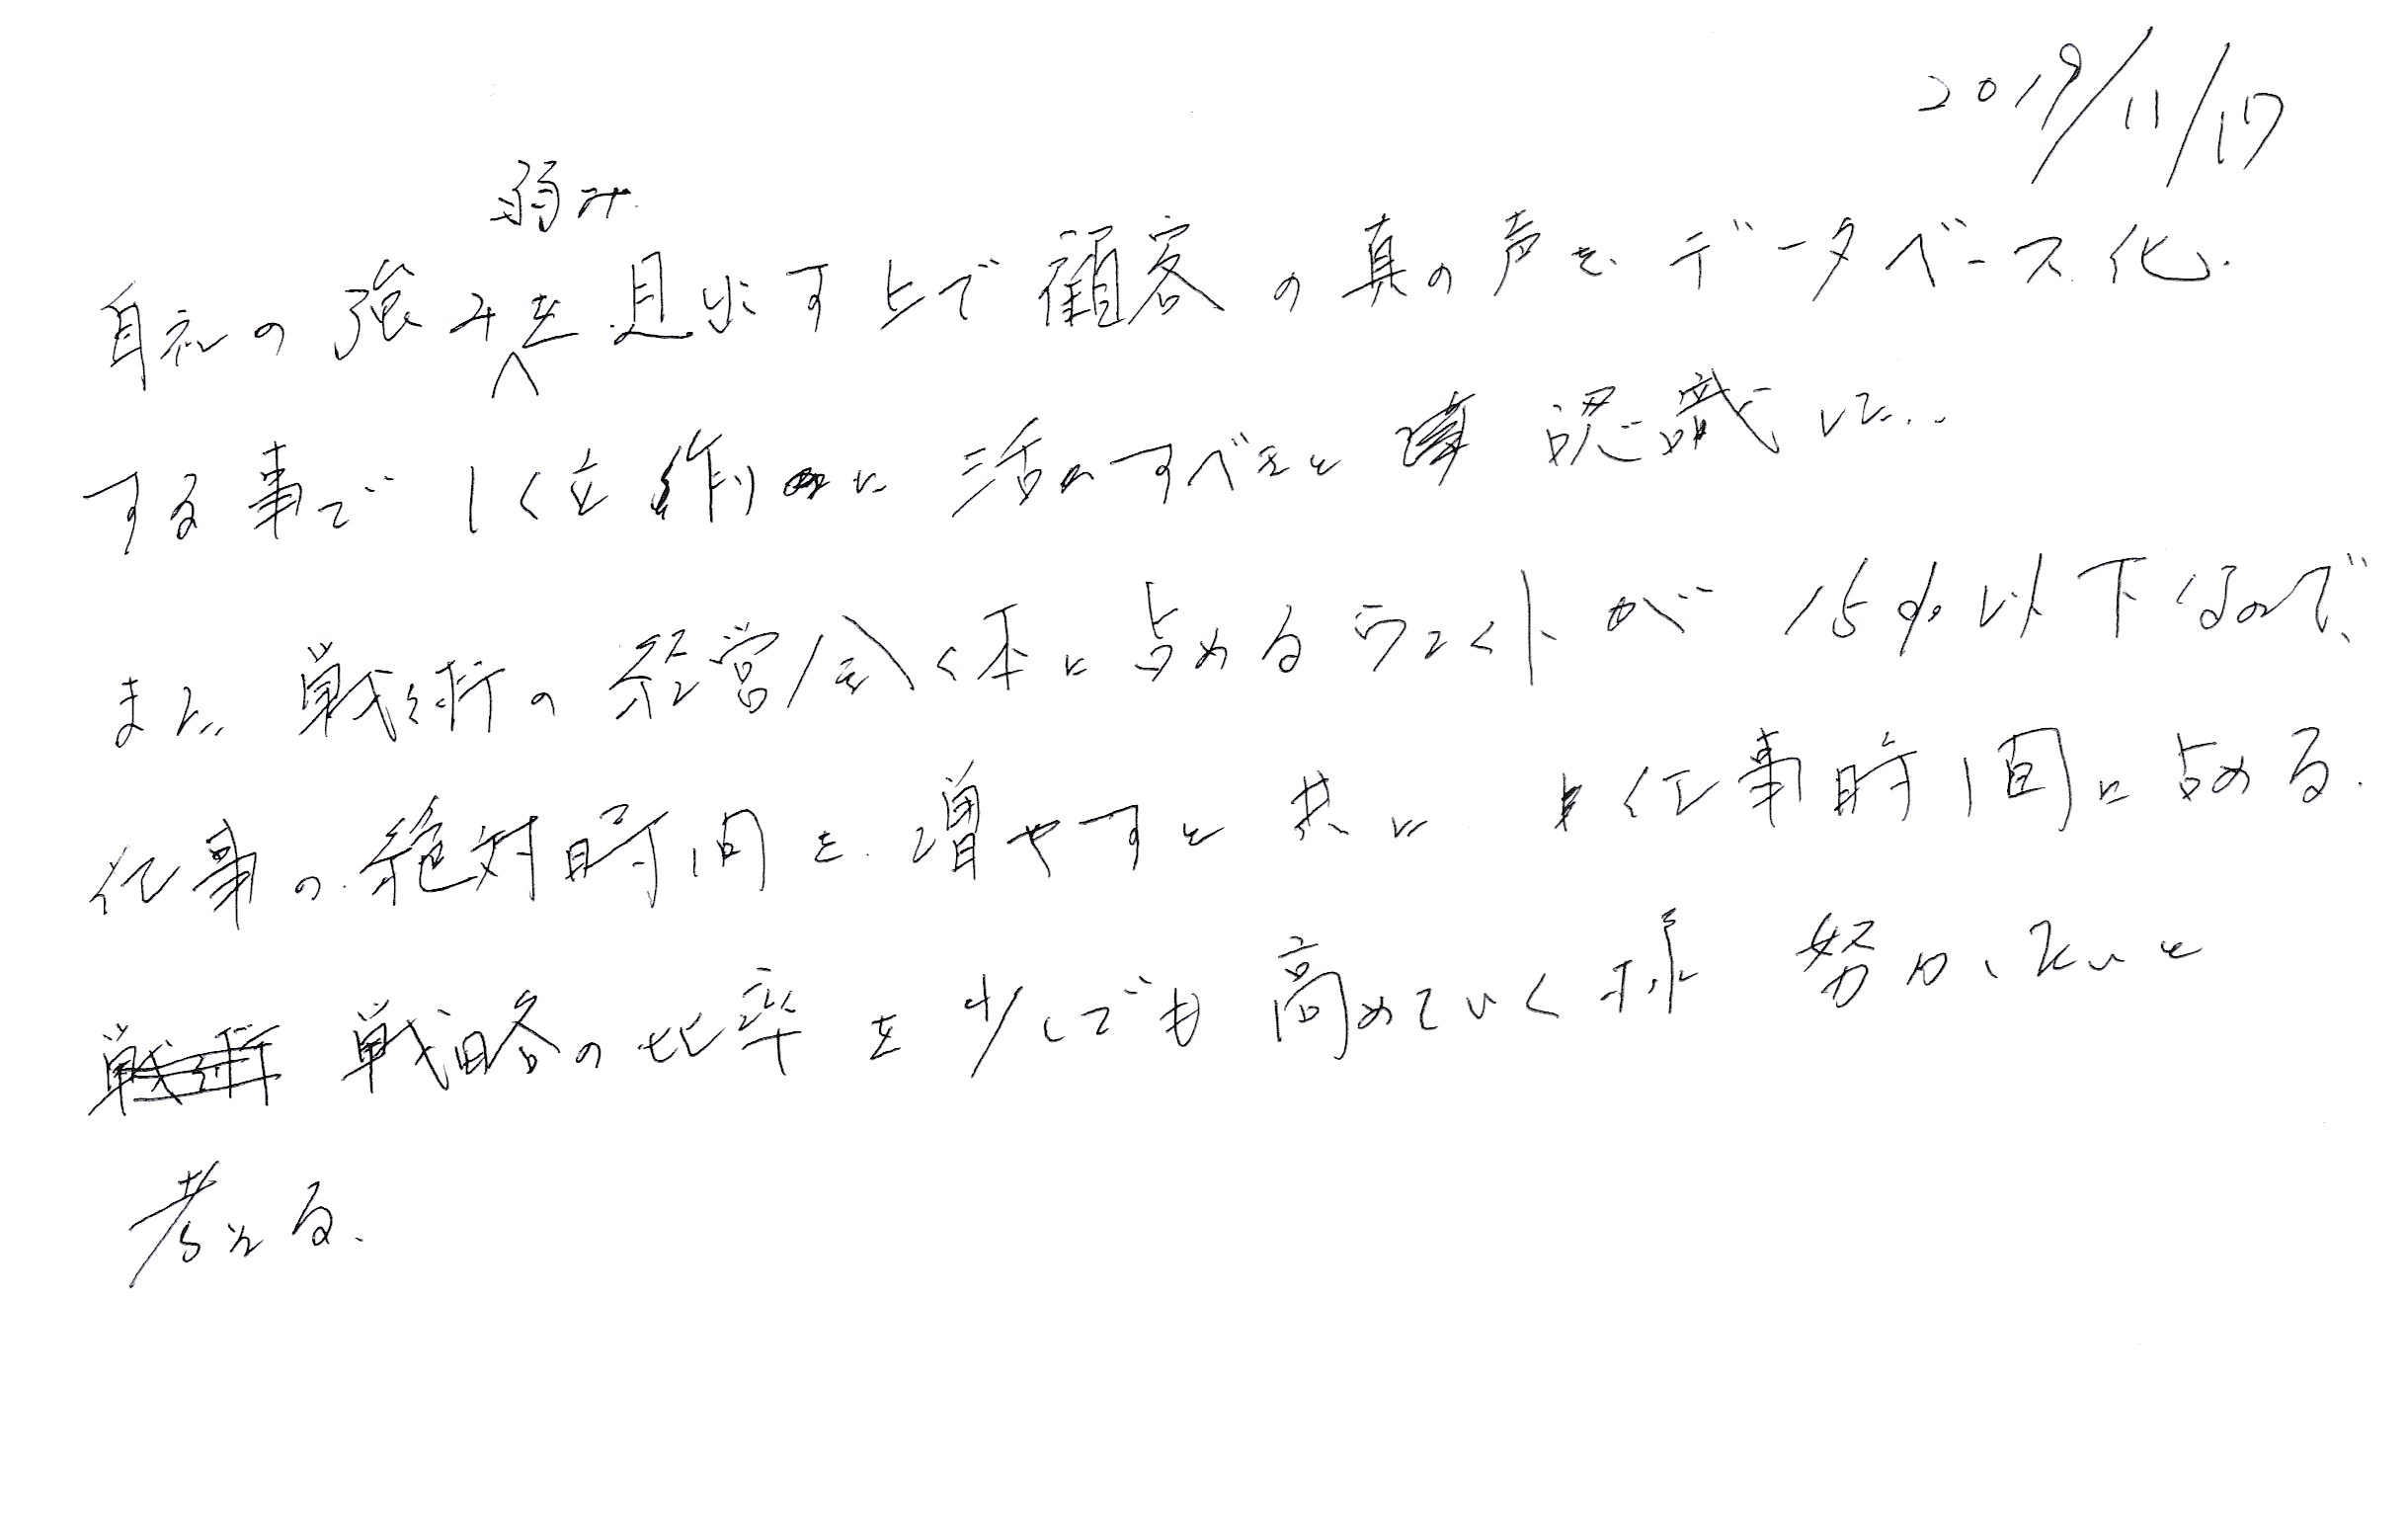 2019/11/17
弱み
自社の強みを見出す上で顧客の真の声をデータベース化
する事で 作りに活かすべきと 認識した。
また 戦術の経営全体に占めるウェイトが 15%以下なので、
仕事の絶対時間を増やすと共に 仕事時間に占める
戦術 戦略の比率を少しでも高めていく様 努力したいと
考える。